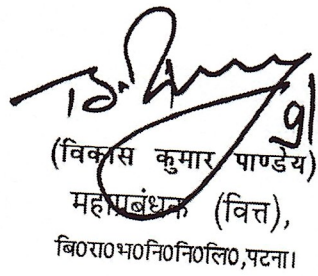 (विकास कुमार पाण्डेय)
महाप्रबंधक (वित्त),
बि०रा०भ०नि०नि०लि०,पटना।